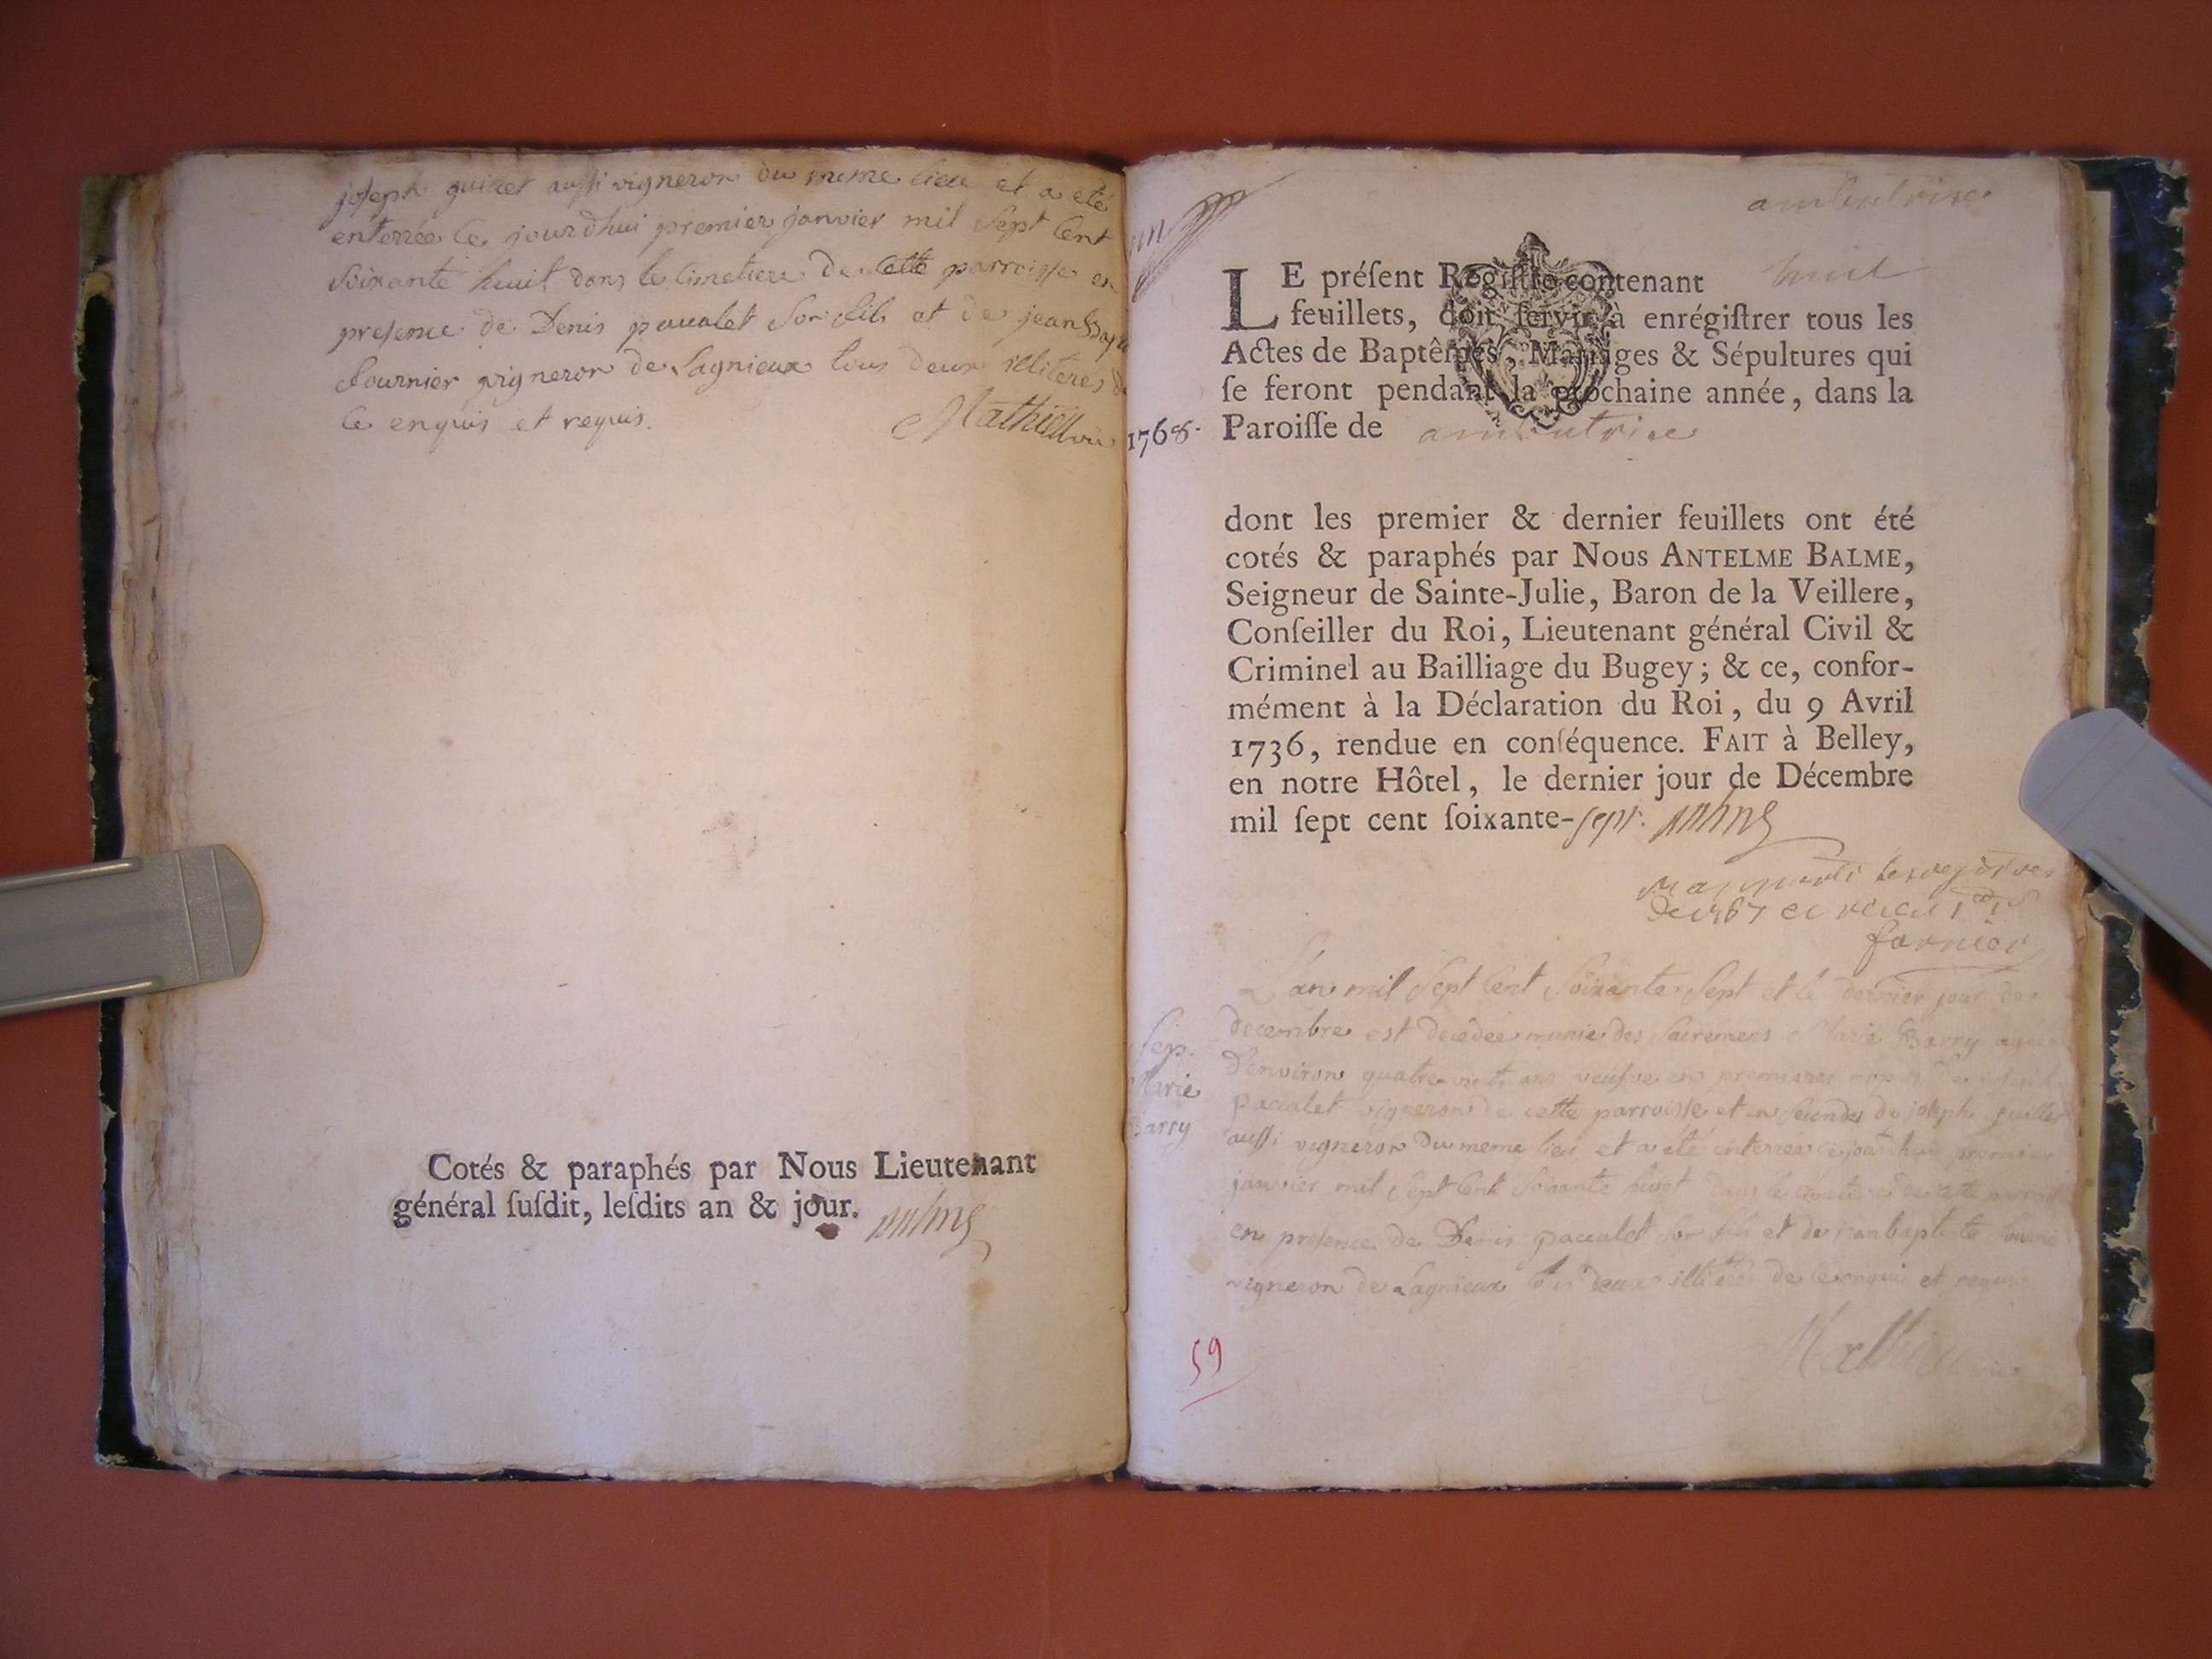 joseph guillet aussi vigneron du meme lieu et a eté
enterrée ce jourdhui premier janvier mil sept cent
soixante huit dans le cimetiere de cette parroisse en
presence de Denis pacalet son fils et de jean Bap
fournier vigneron de Lagnieux tous deux illiteres de
ce enquis et requis. Mathieu
Cotés & paraphés par Nous Lieutenant
général ſuſdit, leſdits an & jour.
ambutrix
LE préſent Regiſtre contenant huit
feuillets, doit ſervir à enrégiſtrer tous les
Actes de Baptêmes, Mariages & Sépultures qui
ſe feront pendant la prochaine année, dans la
1768. Paroiſſe de ambutrix
dont les premier & dernier feuillets ont été
cotés & paraphés par Nous ANTELME BALME,
Seigneur de Sainte-Julie, Baron de la Veillere,
Conſeiller du Roi, Lieutenant général Civil &
Criminel au Bailliage du Bugey; & ce, confor-
mément à la Déclaration du Roi, du 9 Avril
1736, rendue en conſéquence. FAIT à Belley,
en notre Hôtel, le dernier jour de Décembre
mil ſept cent ſoixante-sept.
les registres
de 1767
L'an mil sept cent soixante sept et le dernier jour de
decembre est decedée munie des sacremens Marie Barry agée
Sep.
Marie
Barry
d'environ quatre vint ans veufve en premieres
pacalet vigneron de cette parroisse et en secondes de joseph guillet
aussi vigneron du meme lieu et a été enterrée ce jourdhui premier
janvier mil sept cent soixante huit dans le cimetiere de cette parroisse
en presence de Denis pacalet son fils et de jean baptiste fournier
vigneron de Lagnieux tous deux illiteres de ce enquis et requis
Mathieu
59